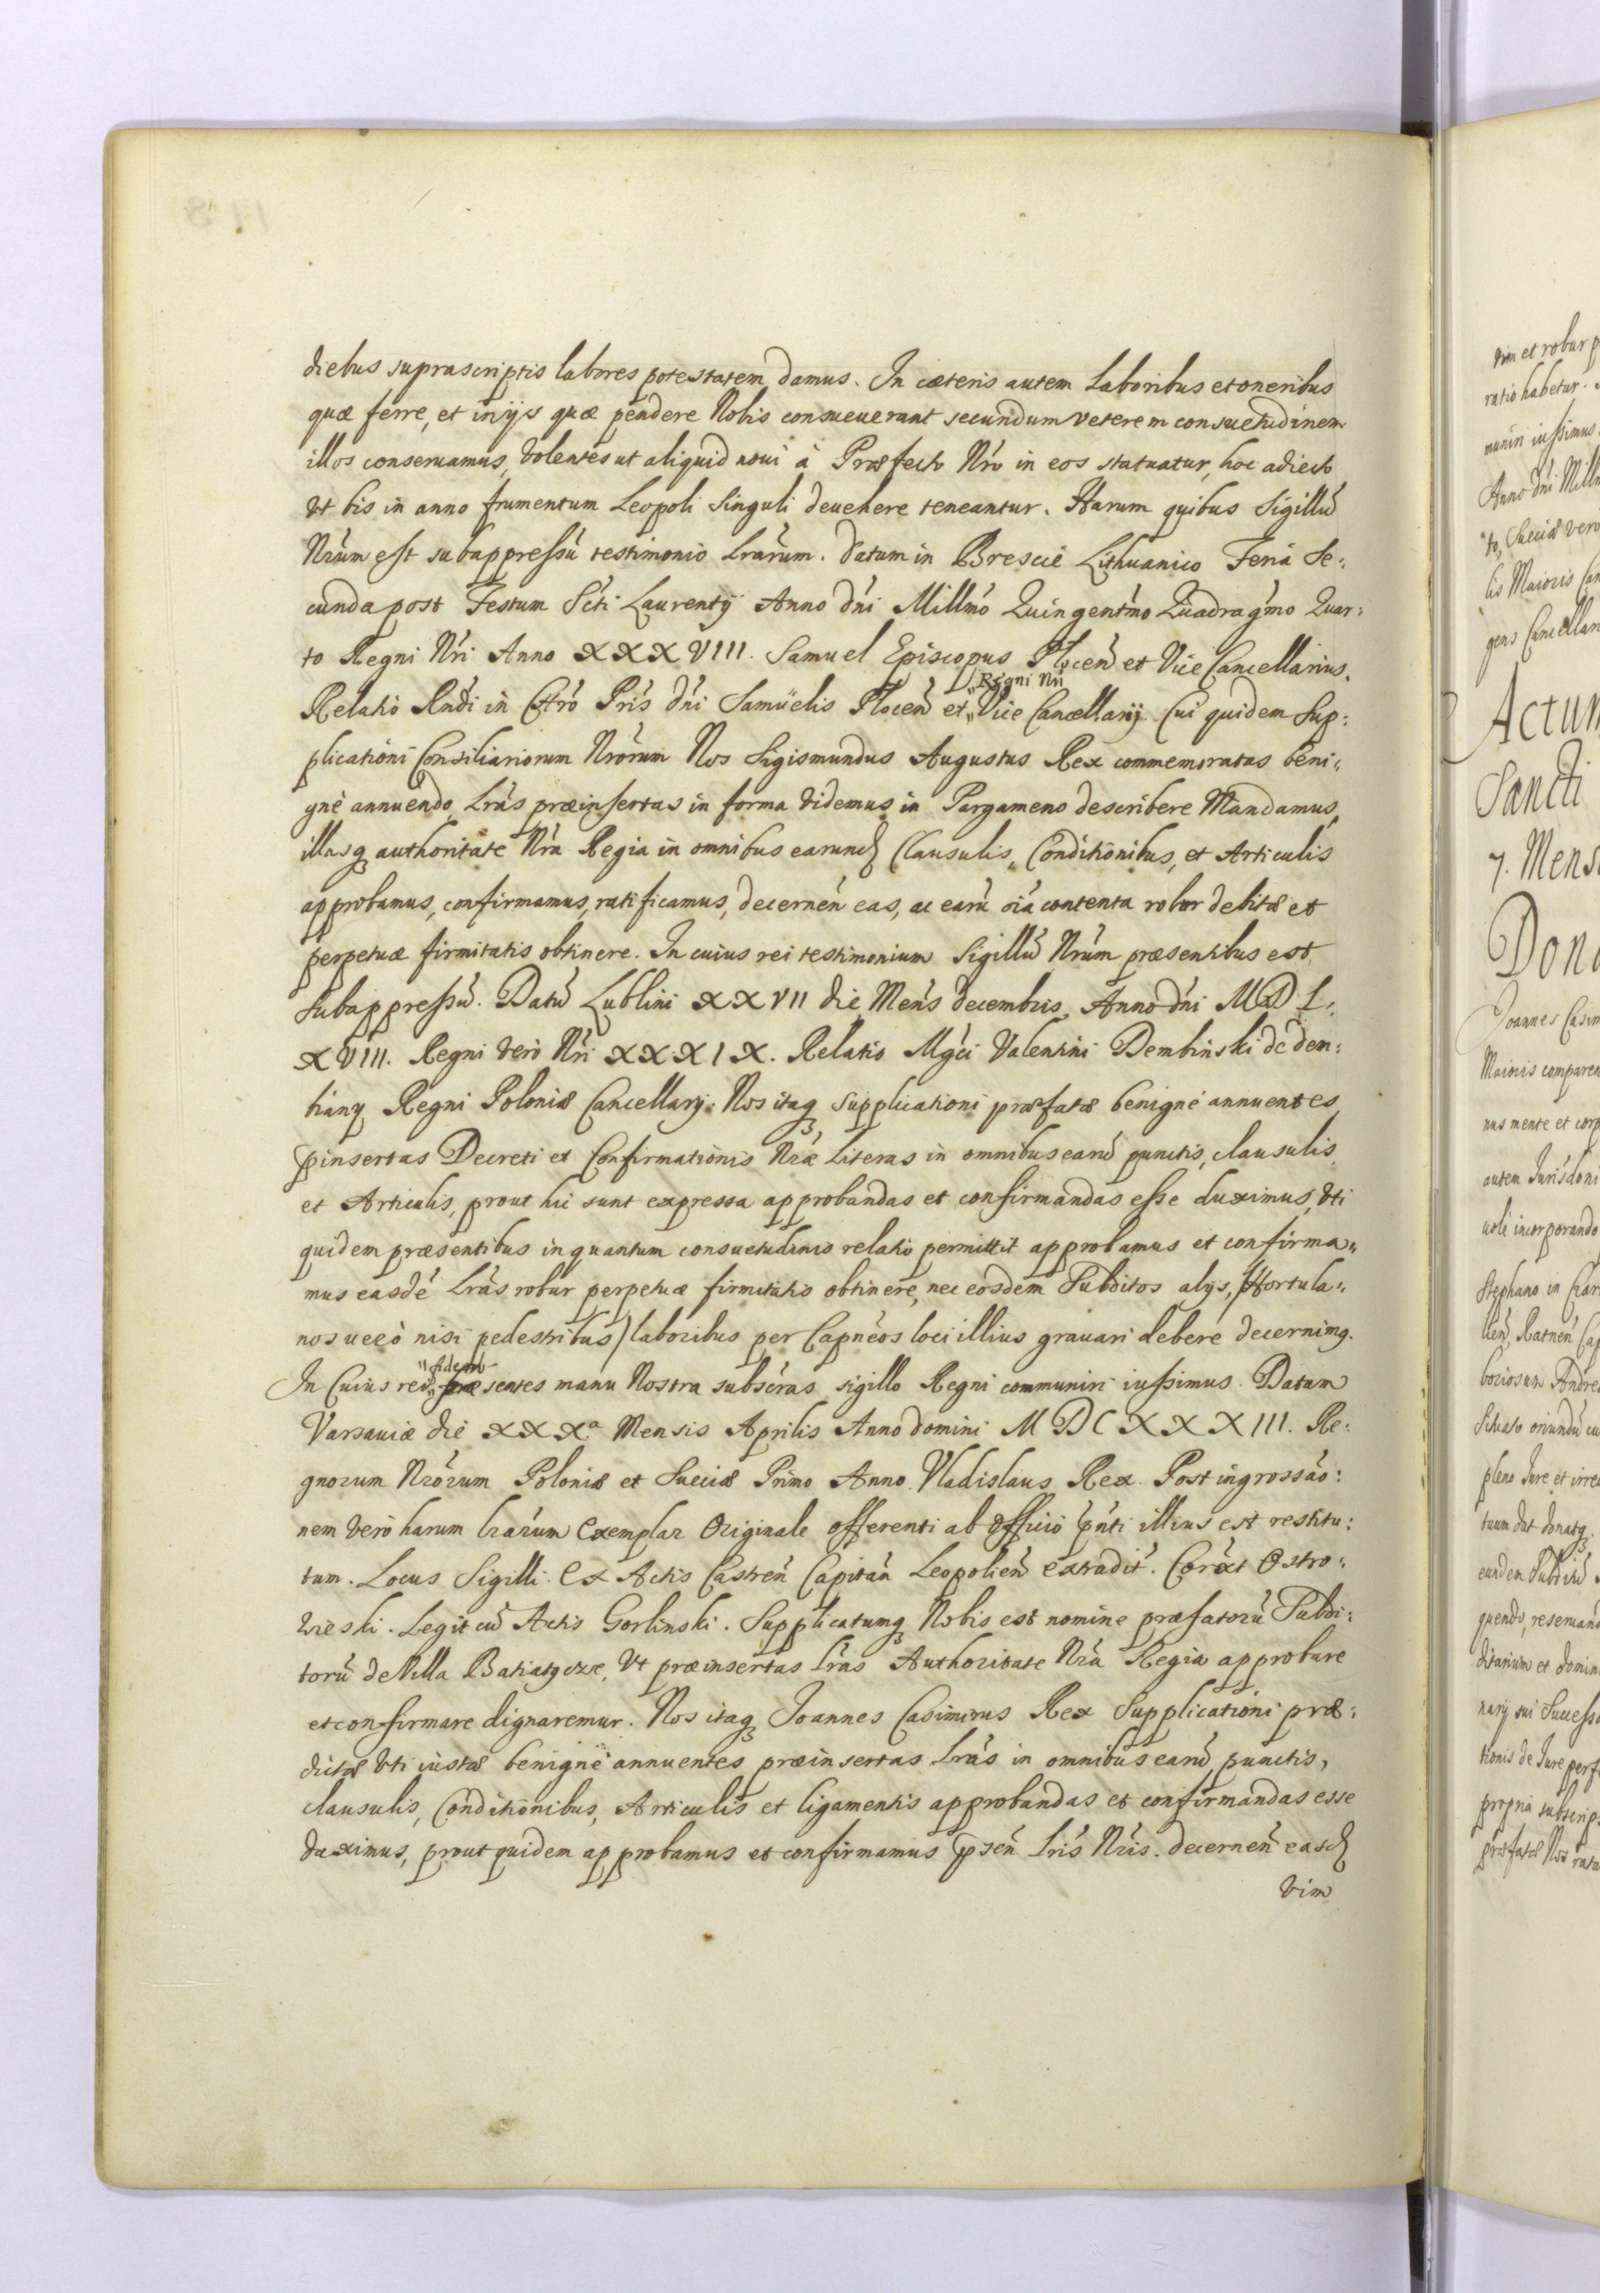 diebus suprascriptis labores potestatem damus. In cæteris autem Laboribus et oneribus
quæ ferre, et in ijs quæ pendere Nobis consueuerant secundum veterem consuetudinem
illos conseruamus, volentes ut aliquid noui à Præfecto Nro in eos statuatur, hoc adiecto
Vt bis in anno frumentum Leopoli singuli deuehere teneantur. Harum quibus Sigillũ
Nrum est subappressũ testimonio Lrarum. Datum in Brescie Lithuanico Feria Se:
cunda post Festum Scti Laurentij Anno dni Millmo Quingentmo Quadragmo Quar:
to Regni Nri Anno XXXVIII. Samuel Episcopus Plocen et Vice Cancellarius.
Relatio Rndi in Chro Pris dni Samuelis Plocen et „Regni Nri„ Vice Cancellarij. Cui quidem Sup:
plicationi Consiliariorum Nrorum Nos Sigismundus Augustus Rex commemoratas beni„
gnè annuendo, Lras præinsertas in forma videmus in Pargameno describere Mandamus,
illasq authoritate Nra Regia in omnibus earund Clausulis, Conditionibus, et Articulis
approbamus, confirmamus, ratificamus, decernen eas, ac earũ oia contenta robur debitæ et
perpetuæ firmitatis obtinere. In cuius rei testimonium Sigillũ Nrum præsentibus est
subappressũ. Datũ Lublini XXVII die Mens decembris, Anno dni MDL:
XVIII. Regni verò Nri XXXIX. Relatio Mgci Valentini Dembinski de dem:
biany Regni Poloniæ Cancellarij. Nos itaq supplicationi præfatæ benignè annuentes
pinsertas Decreti et Confirmationis Nræ Literas in omnibus earũ punctis, clausulis
et Articulis, prout hic sunt expressa approbandas et confirmandas esse duximus, Vti
quidem præsentibus in quantum consuetudinis relatio permittit approbamus et confirma„
mus easdẽ Lras robur perpetuæ firmitatis obtinere, nec eosdem Subditos alijs, (Hortula„
nos uerò nisi pedestribus) laboribus per Capneos loci illius grauari debere decernimq.
In Cuius rei „fidem„ præsentes manu Nostra subscras sigillo Regni communiri iussimus. Datum
Varsauiæ die XXXa Mensis Aprilis Anno domini MDCXXXIII. Re:
gnorum Nrorum Poloniæ et Sueciæ Primo Anno. Vladislaus Rex. Post ingrossão:
nem verò harum lrarum Exemplar Originale offerenti ab officio pnti illius est restitu:
tum. Locus Sigilli. Ex Actis Castren Capitan Leopolien Extradit. Corãxt Ostro:
wieski. Legit cũ Actis Gorlinski. Supplicatumq Nobis est nomine præfatorũ Subdi:
torũ de Villa Batiatycze, Vt præinsertas lras Authoritate Nra Regia approbare
et confirmare dignaremur. Nos itaq Joannes Casimirus Rex Supplicationi præ:
dictæ Vti iustæ benignè annuentes præinsertas Lras in omnibus earũ punctis,
clausulis, Conditionibus, Articulis et ligamentis approbandas et confirmandas esse
duximus, prout quidem approbamus et confirmamus psen lris Nris. decernen easd
vim
vim et robur
ratio habetur.
muniri iussimus.
Anno dni Mill
to, Sueciæ vero
lis Maioris Can
gens Cancellar
Actum
Sancti
7. Mens
Dona
Joannes Casim
Maioris comparen
nus mente et corp
autem Jurisdoni
uoli incorporando
Stephano in Char
lien, Ratnen Cap
boriosum Andre
oriundũ cu
pleno Jure et irre
tuum dat donatq.
eundem Subditũ
quendo, reseruand
ditarium et domin
narij sui Success
tionis de Jure perf
propria subscrip:
præfatæ Nos rata